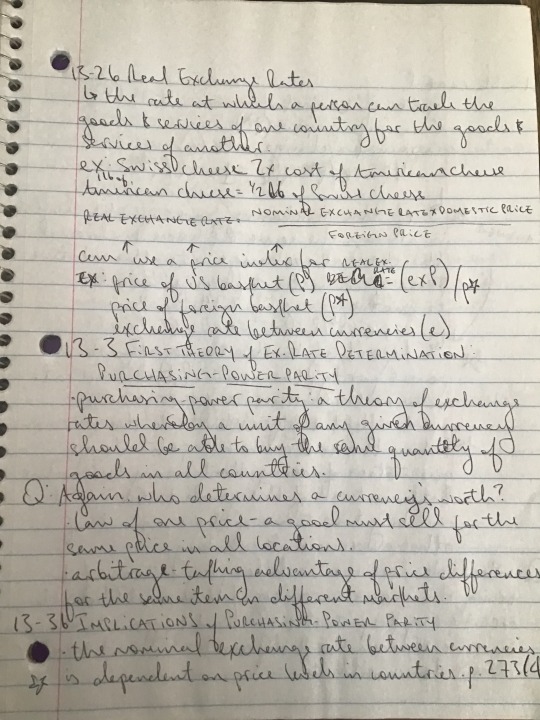 13-2b Real Exchange Rates
↳ the rate at which a person can trade the
goods & services of one country for the goods &
services of another.
ex: Swiss cheese 2x cost of American cheese
1 lb of
American cheese = 1/2 lb of Swiss cheese
REAL EXCHANGE RATE = NOMINAL EXCHANGE RATE x DOMESTIC PRICE
FOREIGN PRICE
can use a price index for
REAL EX. RATE = (exP)/P*
EX: price of US basket (P)
price of foreign basket (P*)
exchange rate between currencies (e)
13-3 FIRST THEORY of EX. RATE DETERMINATION:
PURCHASING-POWER PARITY
· purchasing-power parity: a theory of exchange
rates whereby a unit of any given currency
should be able to buy the same quantity of
goods in all countries.
Q: Again, who determines a currency's worth?
· law of one price - a good must sell for the
same price in all locations.
· arbitrage - taking advantage of price differences
for the same item in different markets.
13-3b IMPLICATIONS of PURCHASING-POWER PARITY
· the nominal exchange rate between currencies
is dependent on price levels in countries. p. 273/4